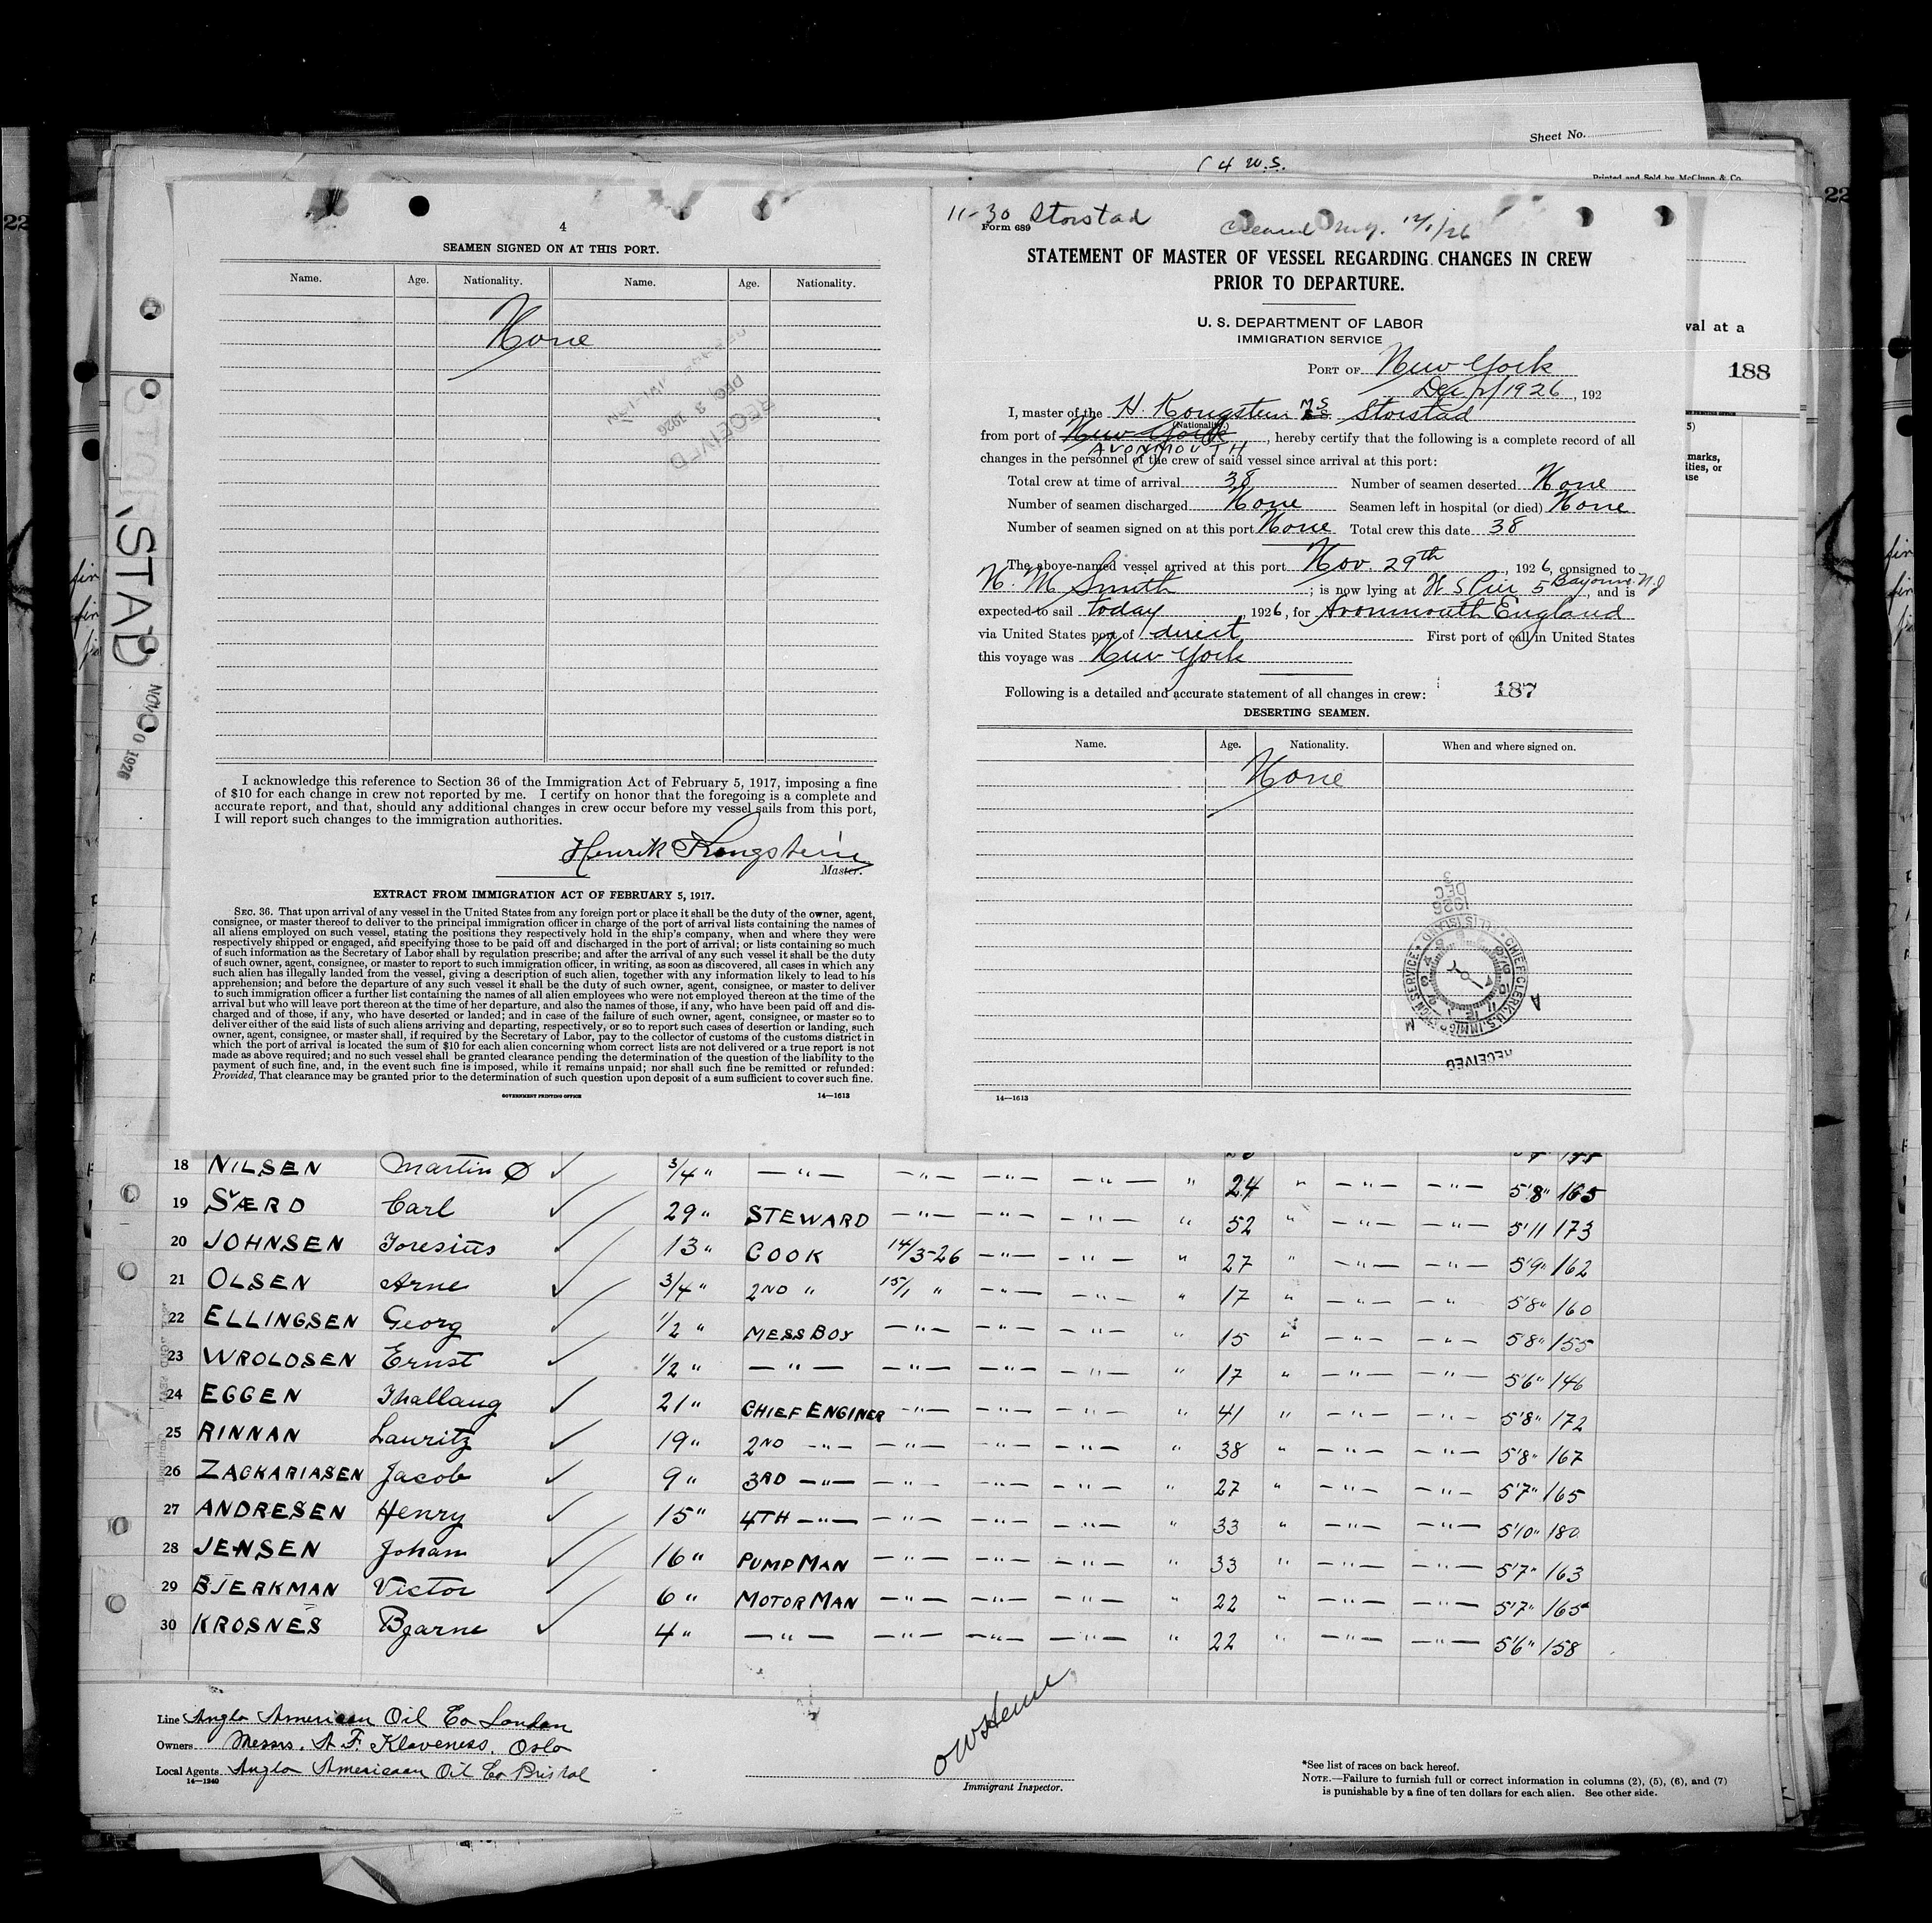 Sheet No.
( 4 W.S.
Printed and Sold by McClunn & Co.
4
SEAMEN SIGNED ON AT THIS PORT.
Name. Age. Nationality. Name. Age. Nationality.
None
RECEIVED
DEC 3 1926
I acknowledge this reference to Section 36 of the Immigration Act of February 5, 1917, imposing a fine
of $10 for each change in crew not reported by me. I certify on honor that the foregoing is a complete and
accurate report, and that, should any additional changes in crew occur before my vessel sails from this port,
I will report such changes to the immigration authorities.
Henrik Kongstein
Master.
EXTRACT FROM IMMIGRATION ACT OF FEBRUARY 5, 1917.
SEC. 36. That upon arrival of any vessel in the United States from any foreign port or place it shall be the duty of the owner, agent,
consignee, or master thereof to deliver to the principal immigration officer in charge of the port of arrival lists containing the names of
all aliens employed on such vessel, stating the positions they respectively hold in the ship's company, when and where they were
respectively shipped or engaged, and specifying those to be paid off and discharged in the port of arrival; or lists containing so much
of such information as the Secretary of Labor shall by regulation prescribe; and after the arrival of any such vessel it shall be the duty
of such owner, agent, consignee, or master to report to such immigration officer, in writing, as soon as discovered, all cases in which any
such alien has illegally landed from the vessel, giving a description of such alien, together with any information likely to lead to his
apprehension; and before the departure of any such vessel it shall be the duty of such owner, agent, consignee, or master to deliver
to such immigration officer a further list containing the names of all alien employees who were not employed thereon at the time of the
arrival but who will leave port thereon at the time of her departure, and also the names of those, if any, who have been paid off and dis-
charged and of those, if any, who have deserted or landed; and in case of the failure of such owner, agent, consignee, or master so to
deliver either of the said lists of such aliens arriving and departing, respectively, or so to report such cases of desertion or landing, such
owner, agent, consignee, or master shall, if required by the Secretary of Labor, pay to the collector of customs of the customs district in
which the port of arrival is located the sum of $10 for each alien concerning whom correct lists are not delivered or a true report is not
made as above required; and no such vessel shall be granted clearance pending the determination of the question of the liability to the
payment of such fine, and, in the event such fine is imposed, while it remains unpaid; nor shall such fine be remitted or refunded:
Provided, That clearance may be granted prior to the determination of such question upon deposit of a sum sufficient to cover such fine.
GOVERNMENT PRINTING OFFICE 14—1613
11-30 Storstad
Form 689
Cleared N.Y. 12/1/26
STATEMENT OF MASTER OF VESSEL REGARDING CHANGES IN CREW
PRIOR TO DEPARTURE.
U. S. DEPARTMENT OF LABOR
IMMIGRATION SERVICE
PORT OF New York
1926, 192
I, master of the H. Kongstein M.S. Storstad
(Nationality.)
from port of New York, hereby certify that the following is a complete record of all
AVONMOUTH
changes in the personnel of the crew of said vessel since arrival at this port:
Total crew at time of arrival 38 Number of seamen deserted None
Number of seamen discharged None Seamen left in hospital (or died) None
Number of seamen signed on at this port None Total crew this date 38
The above-named vessel arrived at this port Nov. 29th, 1926, consigned to
H. M Smith; is now lying at H S Pier 5 Bayonne N.J, and is
expected to sail today, 1926, for Avonmouth England
via United States port of direct First port of call in United States
this voyage was New York
Following is a detailed and accurate statement of all changes in crew: 187
DESERTING SEAMEN.
Name. Age. Nationality. When and where signed on.
None
1926 DEC 3
ELLIS ISLAND • CHIEF CLERK U.S. IMMIGRATION SERVICE
A M
RECEIVED
14—1613
val at a
188
marks,
ities, or
ase
STORSTAD
1926
18 NILSEN Martin Ø ✓ 3/4 " — " — — " — — " — — " — " 24 " — " — — " — 5'8" 165
19 SÆRD Carl ✓ 29 " STEWARD — " — — " — — " — " 52 " — " — — " — 5'11 173
20 JOHNSEN Toresius ✓ 13 " COOK 14/3-26 — " — — " — " 27 " — " — — " — 5'9" 162
21 OLSEN Arne ✓ 3/4 " 2ND " 15/1 " — " — — " — " 17 " — " — — " 5'8" 160
22 ELLINGSEN Georg ✓ 1/2 " MESSBOY — " — — " — — " — " 15 " — " — — " — 5'8" 155
23 WROLDSEN Ernst ✓ 1/2 " — " — — " — — " — — " — " 17 " — " — — " — 5'6" 146
24 EGGEN Thallaug ✓ 21 " CHIEF ENGINER — " — — " — — " — " 41 " — " — — " — 5'8" 172
25 RINNAN Lauritz ✓ 19 " 2ND — " — — " — — " — — " — " 38 " — " — — " — 5'8" 167
26 ZACKARIASEN Jacob ✓ 9 " 3RD — " — — " — — " — — " — " 27 " — " — — " — 5'7" 165
27 ANDRESEN Henry ✓ 15 " 4TH — " — — " — — " — — " — " 33 " — " — — " — 5'10" 180
28 JENSEN Johan ✓ 16 " PUMPMAN — " — — " — — " — " 33 " — " — — " — 5'7" 163
29 BJERKMAN Victor ✓ 6 " MOTORMAN — " — — " — — " — " 22 " — " — — " — 5'7" 165
30 KROSNES Bjarne ✓ 4 " — " — — " — — " — — " — " 22 " — " — — " — 5'6" 158
Line Anglo American Oil Co London
Owners Messrs. A F. Klaveness. Oslo
Local Agents Anglo Americaan Oil Co Bristol
14—1240
Immigrant Inspector.
*See list of races on back hereof.
NOTE.—Failure to furnish full or correct information in columns (2), (5), (6), and (7)
is punishable by a fine of ten dollars for each alien. See other side.